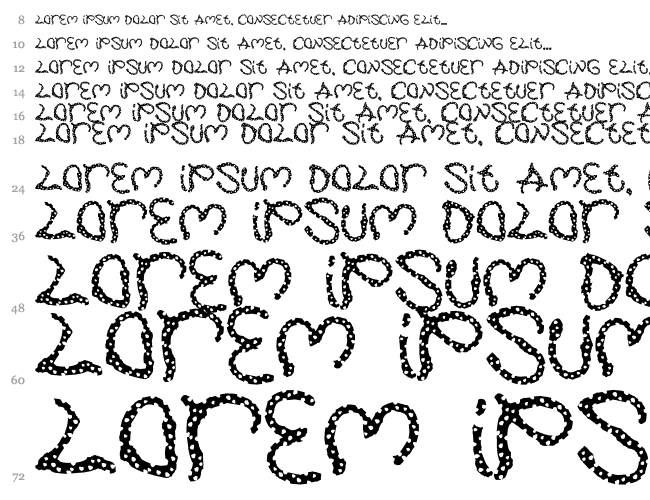 8 Lorem ipsum dolor sit amet, consectetuer adipiscing elit...
10 Lorem ipsum dolor sit amet, consectetuer adipiscing elit...
12 Lorem ipsum dolor sit amet, consectetuer adipiscing elit.
14 Lorem ipsum dolor sit amet, consectetuer adipisc
16 Lorem ipsum dolor sit amet, consectetuer
18 Lorem ipsum dolor sit amet, consectet
24 Lorem ipsum dolor sit amet,
36 Lorem ipsum dolor
48 Lorem ipsum do
60 Lorem ipsum
72 Lorem ips